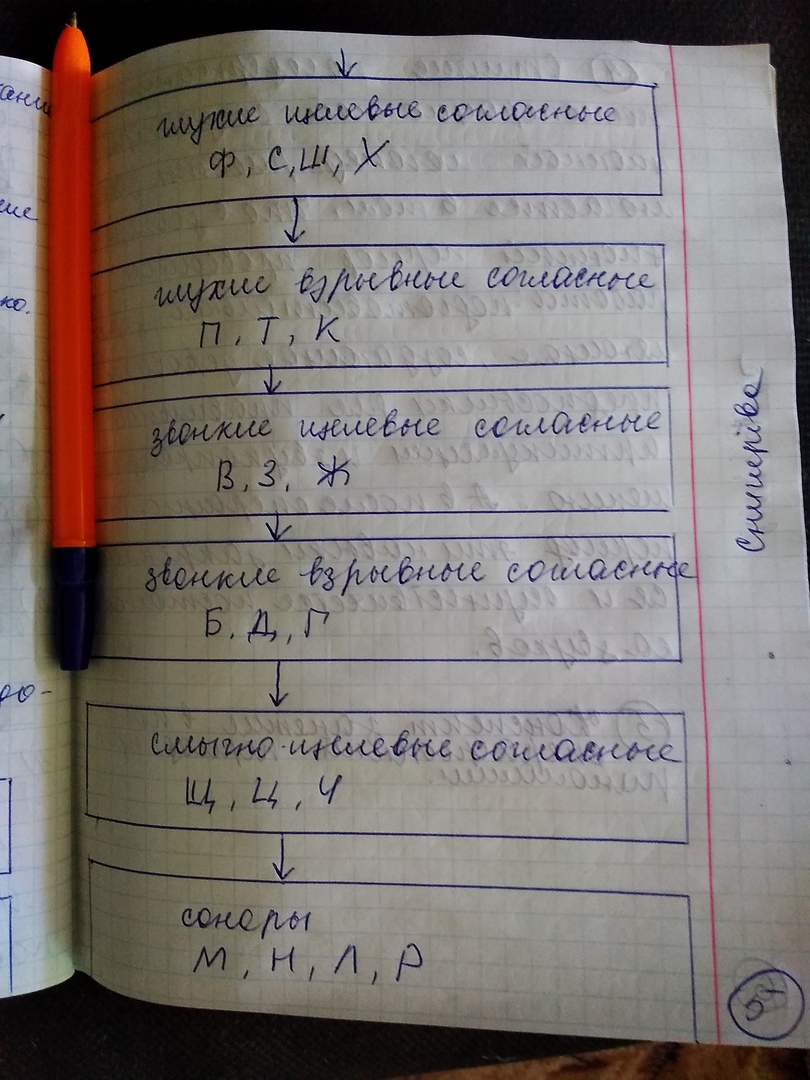 глухие щелевые согласные
Ф, С, Ш, Х
глухие взрывные согласные
П, Т, К
звонкие щелевые согласные
В, З, Ж
звонкие взрывные согласные
Б, Д, Г
смычно-щелевые согласные
Щ, Ц, Ч
соноры
М, Н, Л, Р